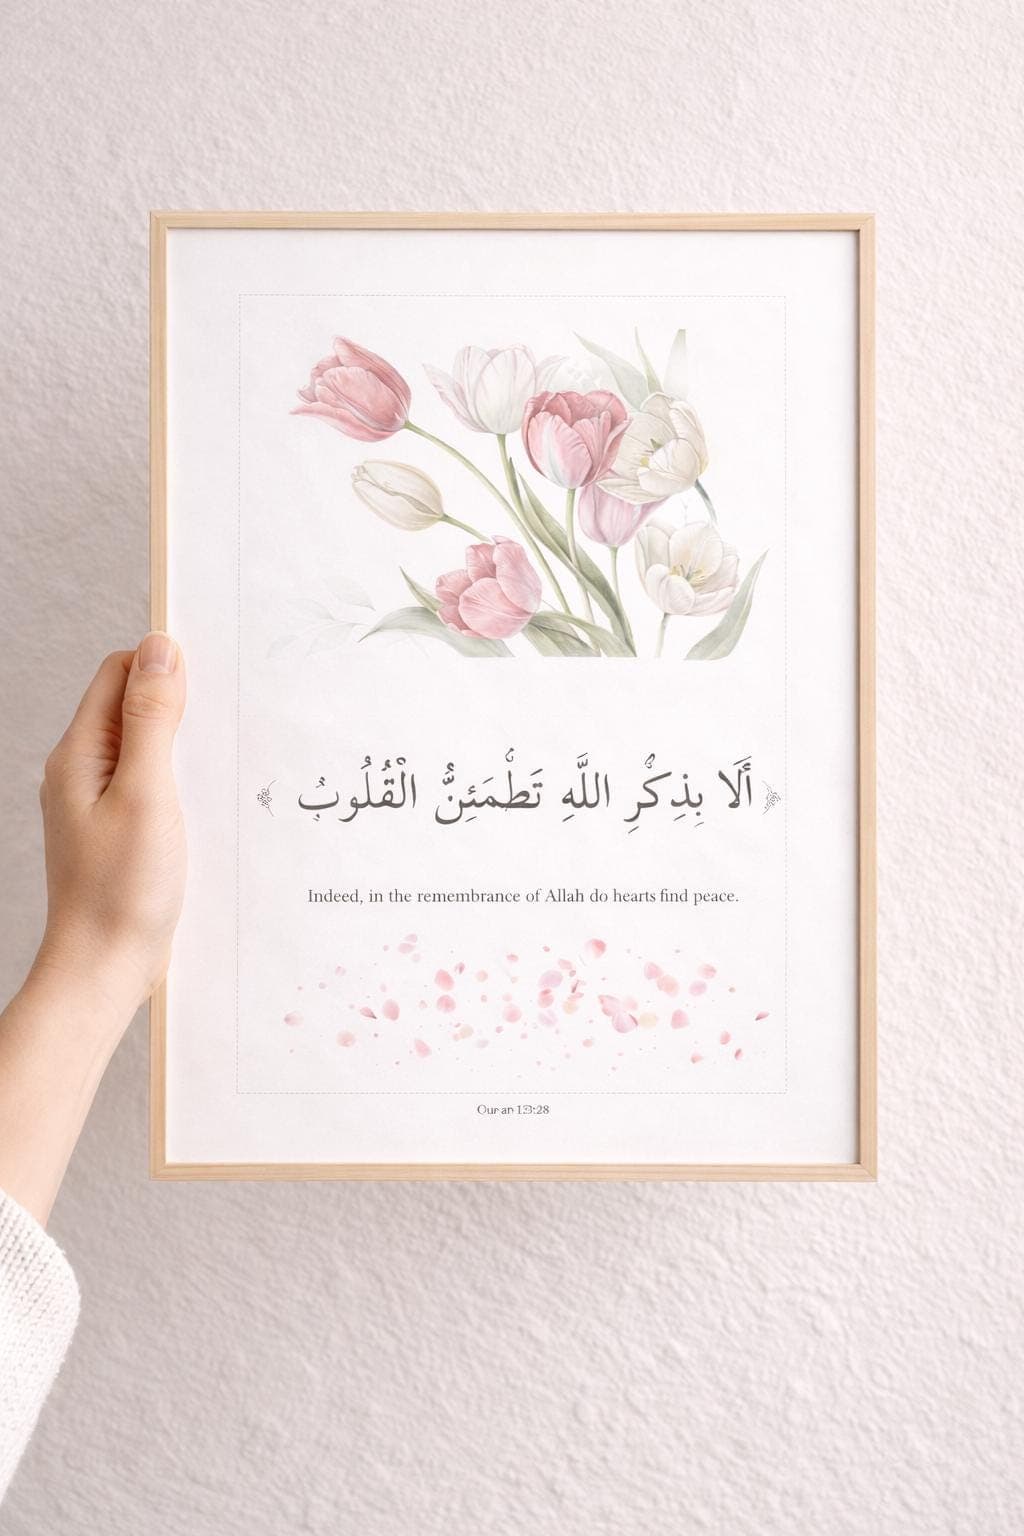 أَلَا بِذِكْرِ اللَّهِ تَطْمَئِنُّ الْقُلُوبُ
Indeed, in the remembrance of Allah do hearts find peace.
Our an 13:28